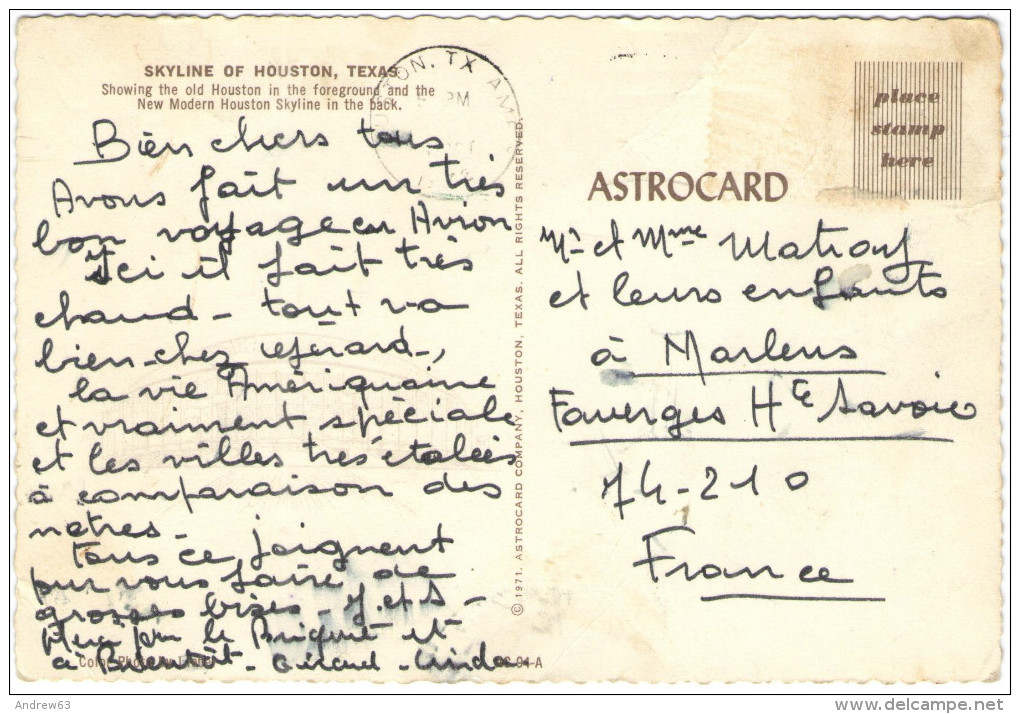 SKYLINE OF HOUSTON, TEXAS
Showing the old Houston in the foreground and the
New Modern Houston Skyline in the back.
Bien chers tous
Avons fait un très
bon voyage en Avion
Ici il fait très
chaud - tout va
bien chez Gérard -,
la vie Amériquaine
et vraiment spéciale
et les villes très étalées
à comparaison des
notres -
tous ce joignent
pur vous faire de
grosses bizes - J. et S -
le Briquet et
à Bientôt - Gérard - Linda -
Color Photo by
-94-A
© 1971, ASTROCARD COMPANY, HOUSTON, TEXAS. ALL RIGHTS RESERVED.
HOUSTON, TX
PM
place
stamp
here
ASTROCARD
Mr et Mme
et leurs enfants
à Marlens
Faverges Hte Savoie
74-210
France
Andrew63
www.delcampe.net